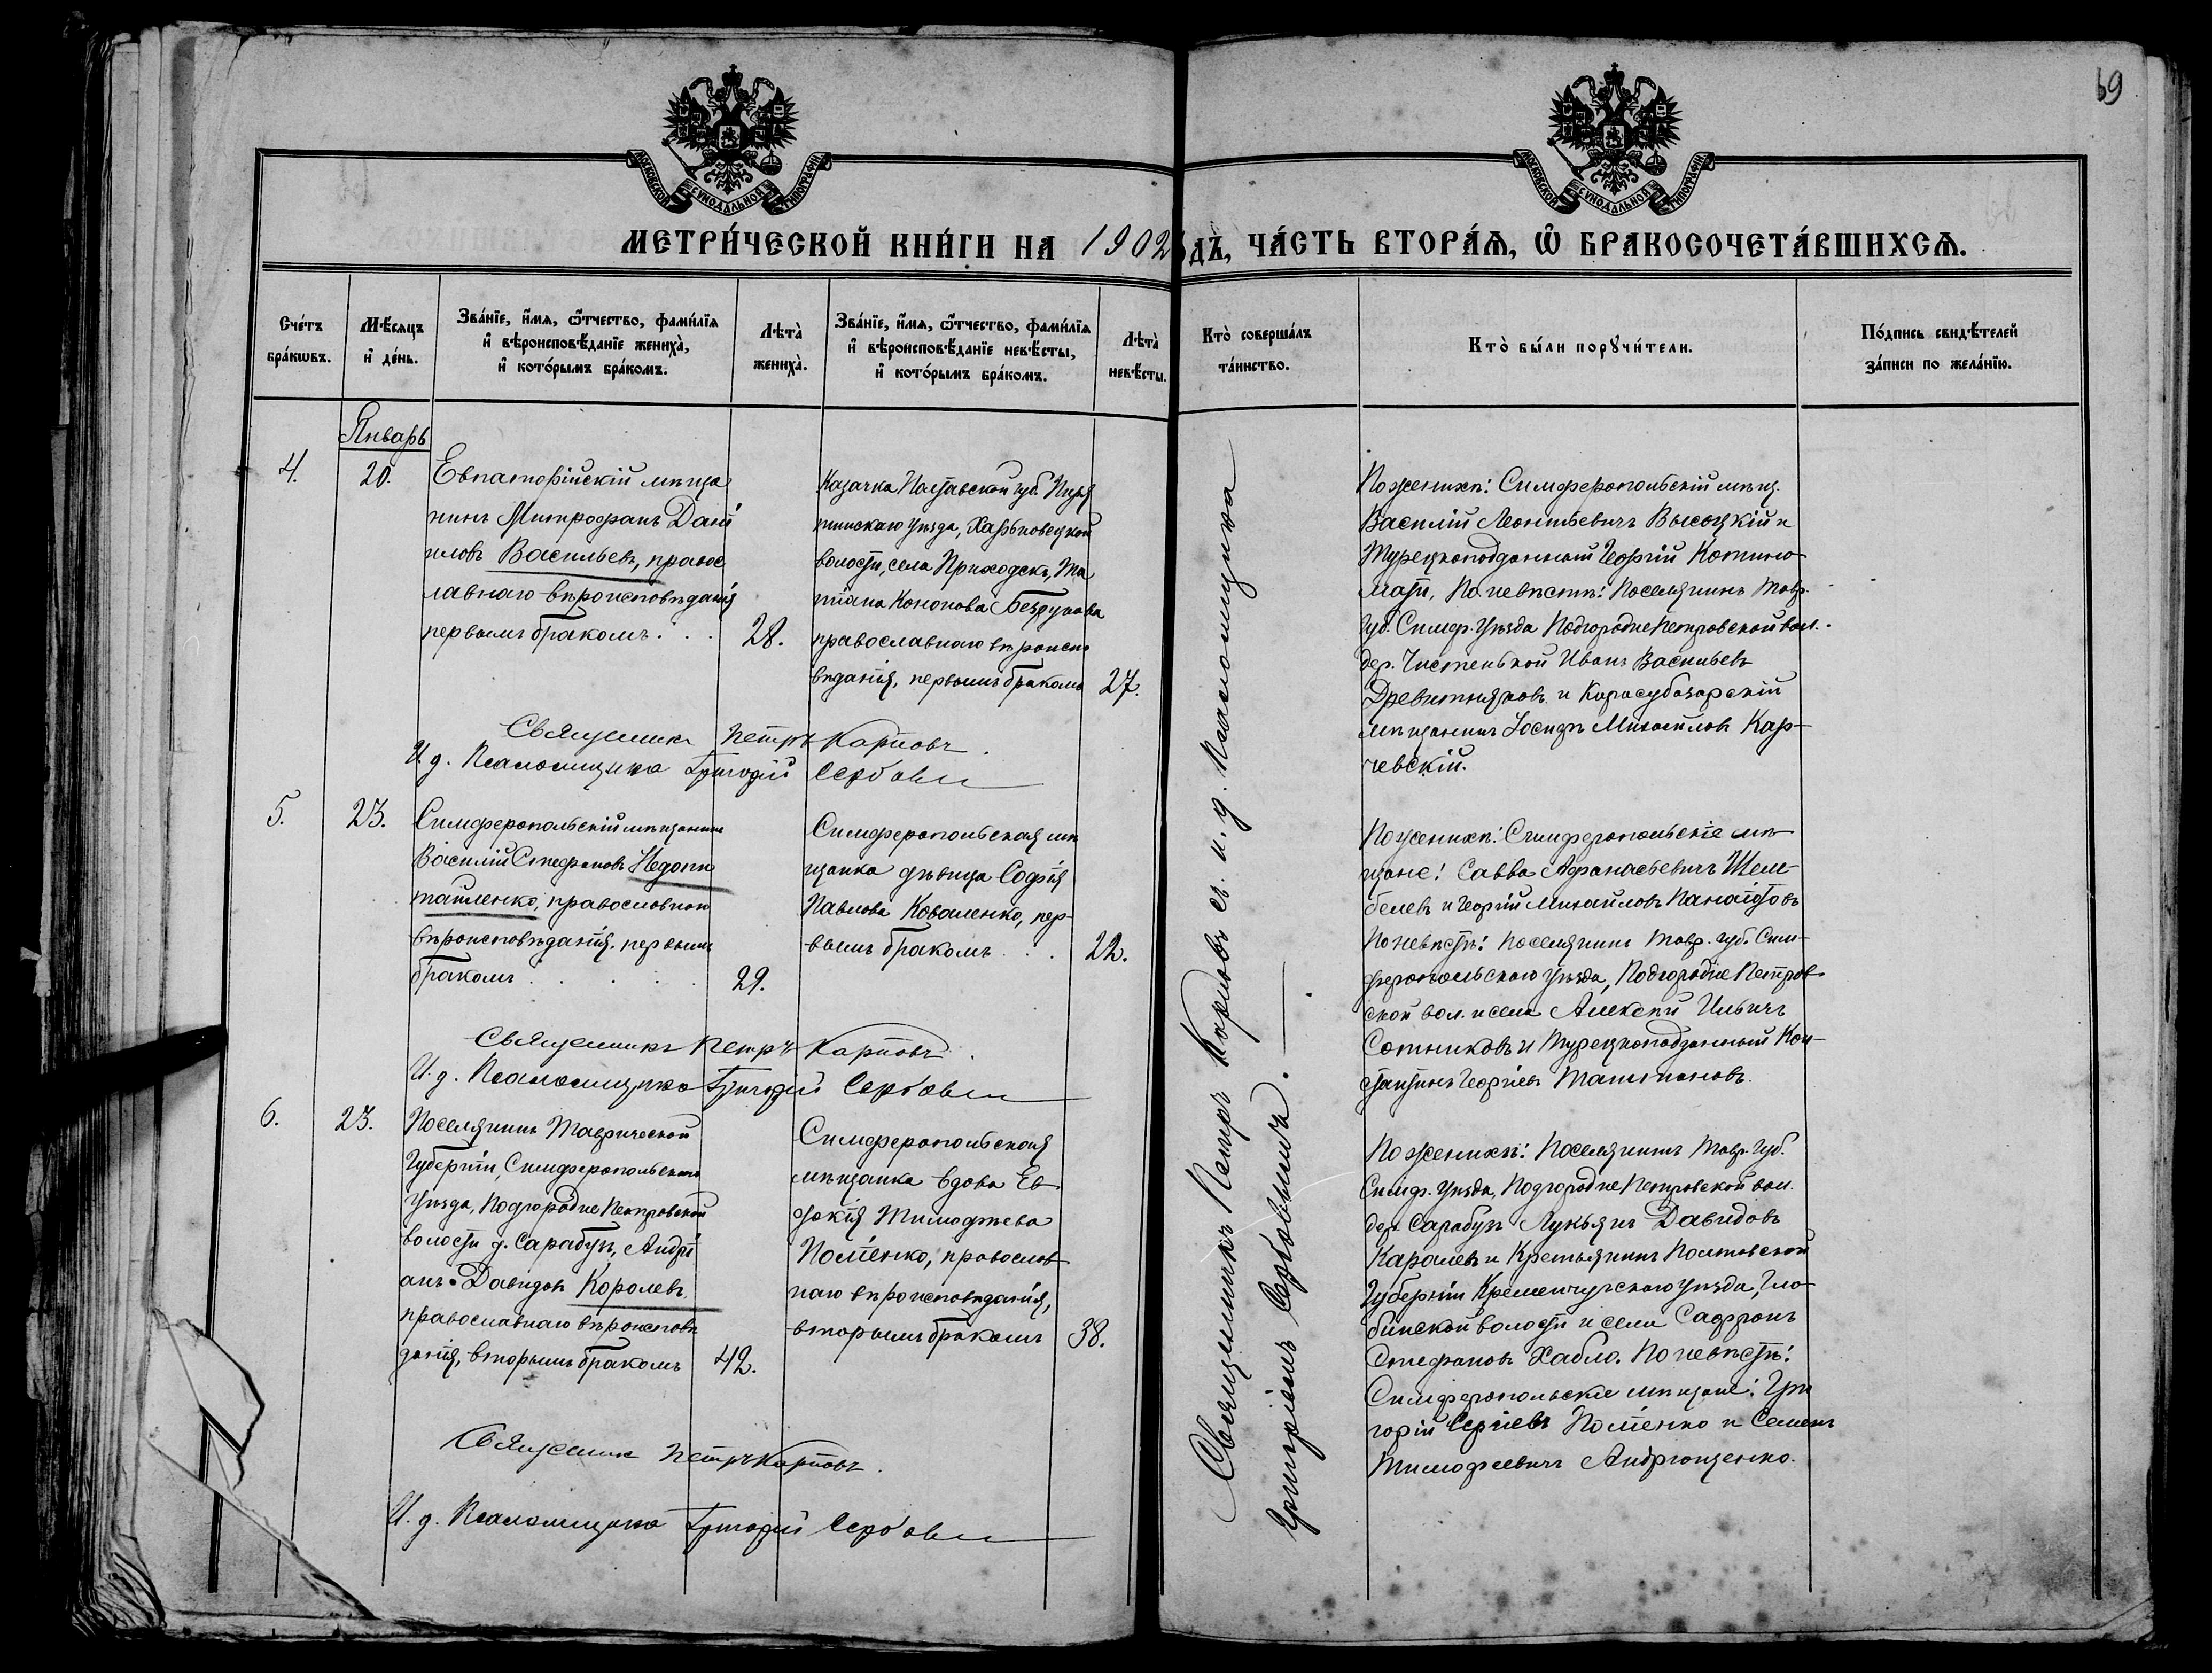 69
МОСКОВСКОЙ СѴНОДАЛЬНОЙ ТИПОГРАФІИ
МОСКОВСКОЙ СѴНОДАЛЬНОЙ ТИПОГРАФІИ
МЕТРИ́ЧЕСКОЙ КНИ́ГИ НА 1902 ДЪ, ЧА́СТЬ ВТОРА́Ѧ, Ѽ БРАКОСОЧЕТА́ВШИХСѦ.
Сче́тъ
бра́кѡвъ.
Мѣ́сяцъ
и҆ де́нь.
Зва́нїе, и҆́мѧ, ѻ҆́тчество, фами́лїѧ
и҆ вѣроисповѣ́данїе жениха̀,
и҆ кото́рымъ бра́комъ.
Лѣта̀
жениха̀.
Зва́нїе, и҆́мѧ, ѻ҆́тчество, фами́лїѧ
и҆ вѣроисповѣ́данїе невѣ́сты,
и҆ кото́рымъ бра́комъ.
Лѣта̀
невѣ́сты.
Кто̀ соверша́лъ
та́инство.
Кто̀ бы́ли порꙋчи́тели.
По́дпись свидѣ́телей
за́писи по жела́нїю.
Январь
4.
20.
Евпаторійскій мѣща
нинъ Митрофанъ Дані
иловъ Васильевъ, правос
лавнаго вѣроисповѣданія
первымъ бракомъ . . .
28.
Казачка Полтавской губ. Пиря
тинскаго уѣзда, Харьковецкой
волости, села Приходекъ, Та
тіана Кононова Безрукова
православнаго вѣроиспо
вѣданія, первымъ бракомъ
27.
Священникъ Петръ Карповъ.
И. д. Псаломщика Григорій Сербовичъ
По женихѣ: Симферопольскій мѣщ.
Василій Леонтьевичъ Высоцкій и
Турецкоподданный Георгій Котино
мати, По невѣстѣ: Поселянинъ Тавр.
губ. Симф. Уѣзда Подгородне Петровской вол.
дер. Чистенькой Иванъ Васильевъ
и Карасубазарскій
мѣщанинъ Іосифъ Михайловъ Кар-
чевскій.
5.
23.
Симферопольскій мѣщанинъ
Василій Стефановъ Недопи
тайленко, православнаго
вѣроисповѣданія, первымъ
бракомъ . . . . .
29.
Симферопольская мѣ
щанка дѣвица Софія
Павлова Коваленко, пер-
вымъ бракомъ . . .
22.
Священникъ Петръ Карповъ.
И. д. Псаломщика Григорій Сербовичъ
По женихѣ: Симферопольскіе мѣ
щане: Савва Афанасьевичъ Шем-
белевъ и Георгій Михайловъ Панаіотовъ
По невѣстѣ: поселянинъ Тавр. губ. Сим-
феропольскаго уѣзда, Подгородне Петров-
ской вол. и села Алексѣй Ильичъ
Сотниковъ и Турецкоподданный Кон-
стантинъ Георгіевъ
6.
23.
Поселянинъ Таврической
Губерніи, Симферопольскаго
Уѣзда, Подгородне Петровской
волости д. Сарабузъ, Андрі
анъ Давидовъ Королевъ,
православнаго вѣроисповѣ
данія, вторымъ бракомъ
42.
Симферопольская
мѣщанка вдова Ев-
докія Тимофѣева
Поліенко, православ-
наго вѣроисповѣданія,
вторымъ бракомъ
38.
Священникъ Петръ Карповъ.
И. д. Псаломщика Григорій Сербовичъ
По женихѣ: Поселянинъ Тавр. Губ.
Симф. Уѣзда, Подгородне Петровской вол.
дер. Сарабузъ Лукьянъ Давидовъ
Каралевъ и Крестьянинъ Полтавской
Губерніи Кременчугскаго Уѣзда, Гло-
бинской волости и села Сафронъ
Стефановъ Хабло. По невѣстѣ:
Симферопольскіе мѣщане: Гри
горій Сергіевъ Поліенко и Семенъ
Тимофеевичъ Андрющенко.
Священникъ Петръ Карповъ съ и. д. Псаломщика
Григоріемъ Сербовичемъ.